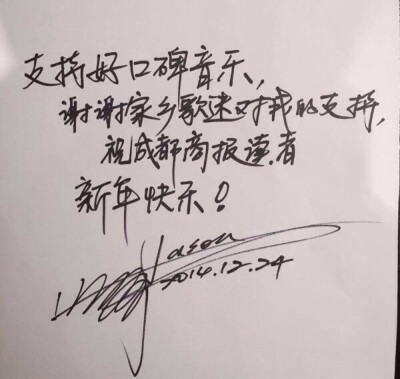 支持好口碑音乐,
谢谢家乡歌迷对我的支持,
祝成都商报读者
新年快乐!
Jason
2014.12.24